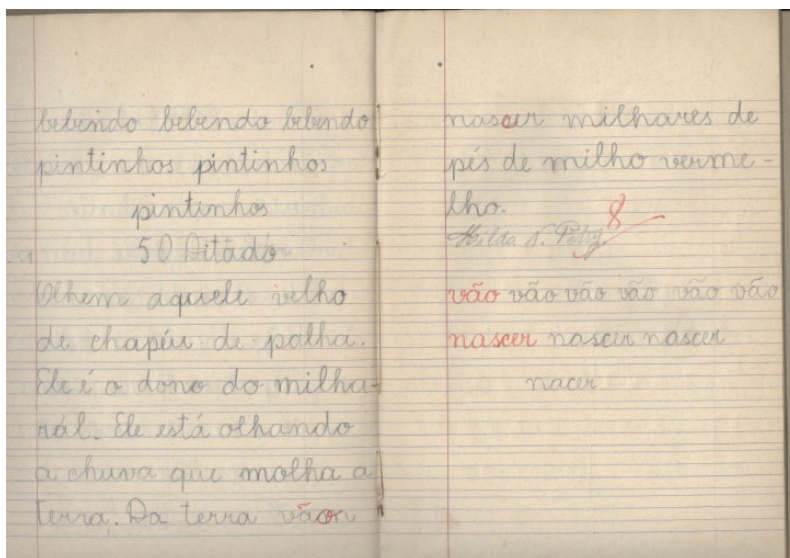 bebendo bebendo bebendo
pintinhos pintinhos
pintinhos
50 Ditado
Olhem aquele velho
de chapéu de palha.
Ele é o dono do milha-
ral. Ele está olhando
a chuva que molha a
terra. Da terra vão
nascer milhares de
pés de milho verme-
lho.
8
Hilda N.
vão vão vão vão vão vão
nascer nascer nascer
nacer